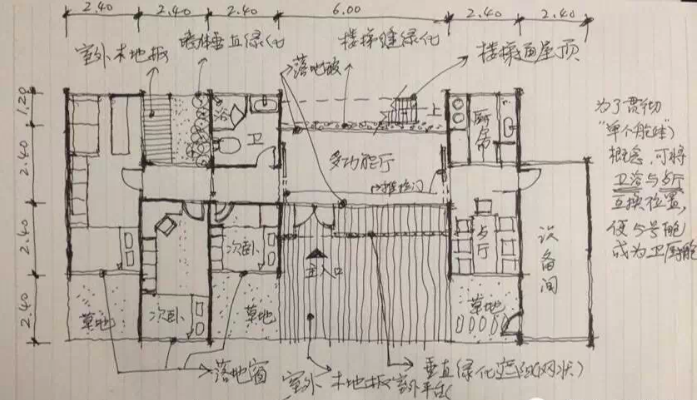 2.40 2.40 2.40 6.00 2.40 2.40
室外木地板
墙体垂直绿化
落地玻
楼梯缝绿化
楼梯通屋顶
1.20
2.40
2.40
2.40
卫
上
厨房
多功能厅
次卧
次卧
主入口
厅
设备间
草地
草地
草地
落地窗
室外木地板
室外平台
垂直绿化
为了贯彻
概念,可将
卫浴与
厅
互换位置,
成为卫厨舱